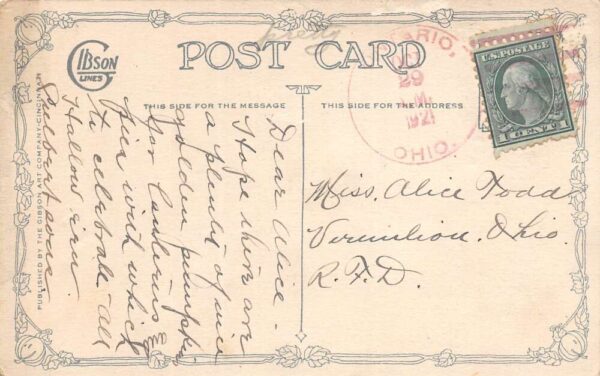 GIBSON
LINES
POST CARD
THIS SIDE FOR THE MESSAGE
THIS SIDE FOR THE ADDRESS
ARIO,
29
M.
1921
OHIO.
U.S. POSTAGE
1 CENT 1
Miss. Alice Todd
Vermilion. Ohio.
R. F. D.
Dear Alice -
Hope there are
a plenty of nice
golden pumpkins
for lanterns &
pies with which
to celebrate all
Hallow een
PUBLISHED BY THE GIBSON ART COMPANY-CINCINNATI